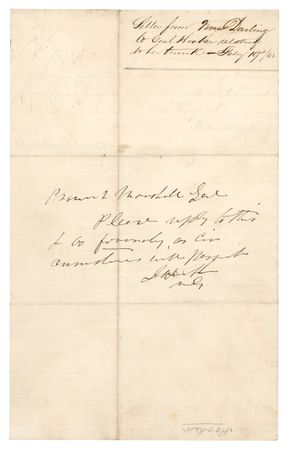 Letter from Mrs Darling
to Genl Hooker relating
to her trunk – Feby 19th/62
Provost Marshall Genl
Please reply to this
& as favorably as Cir
cumstances will Permit
Hooker